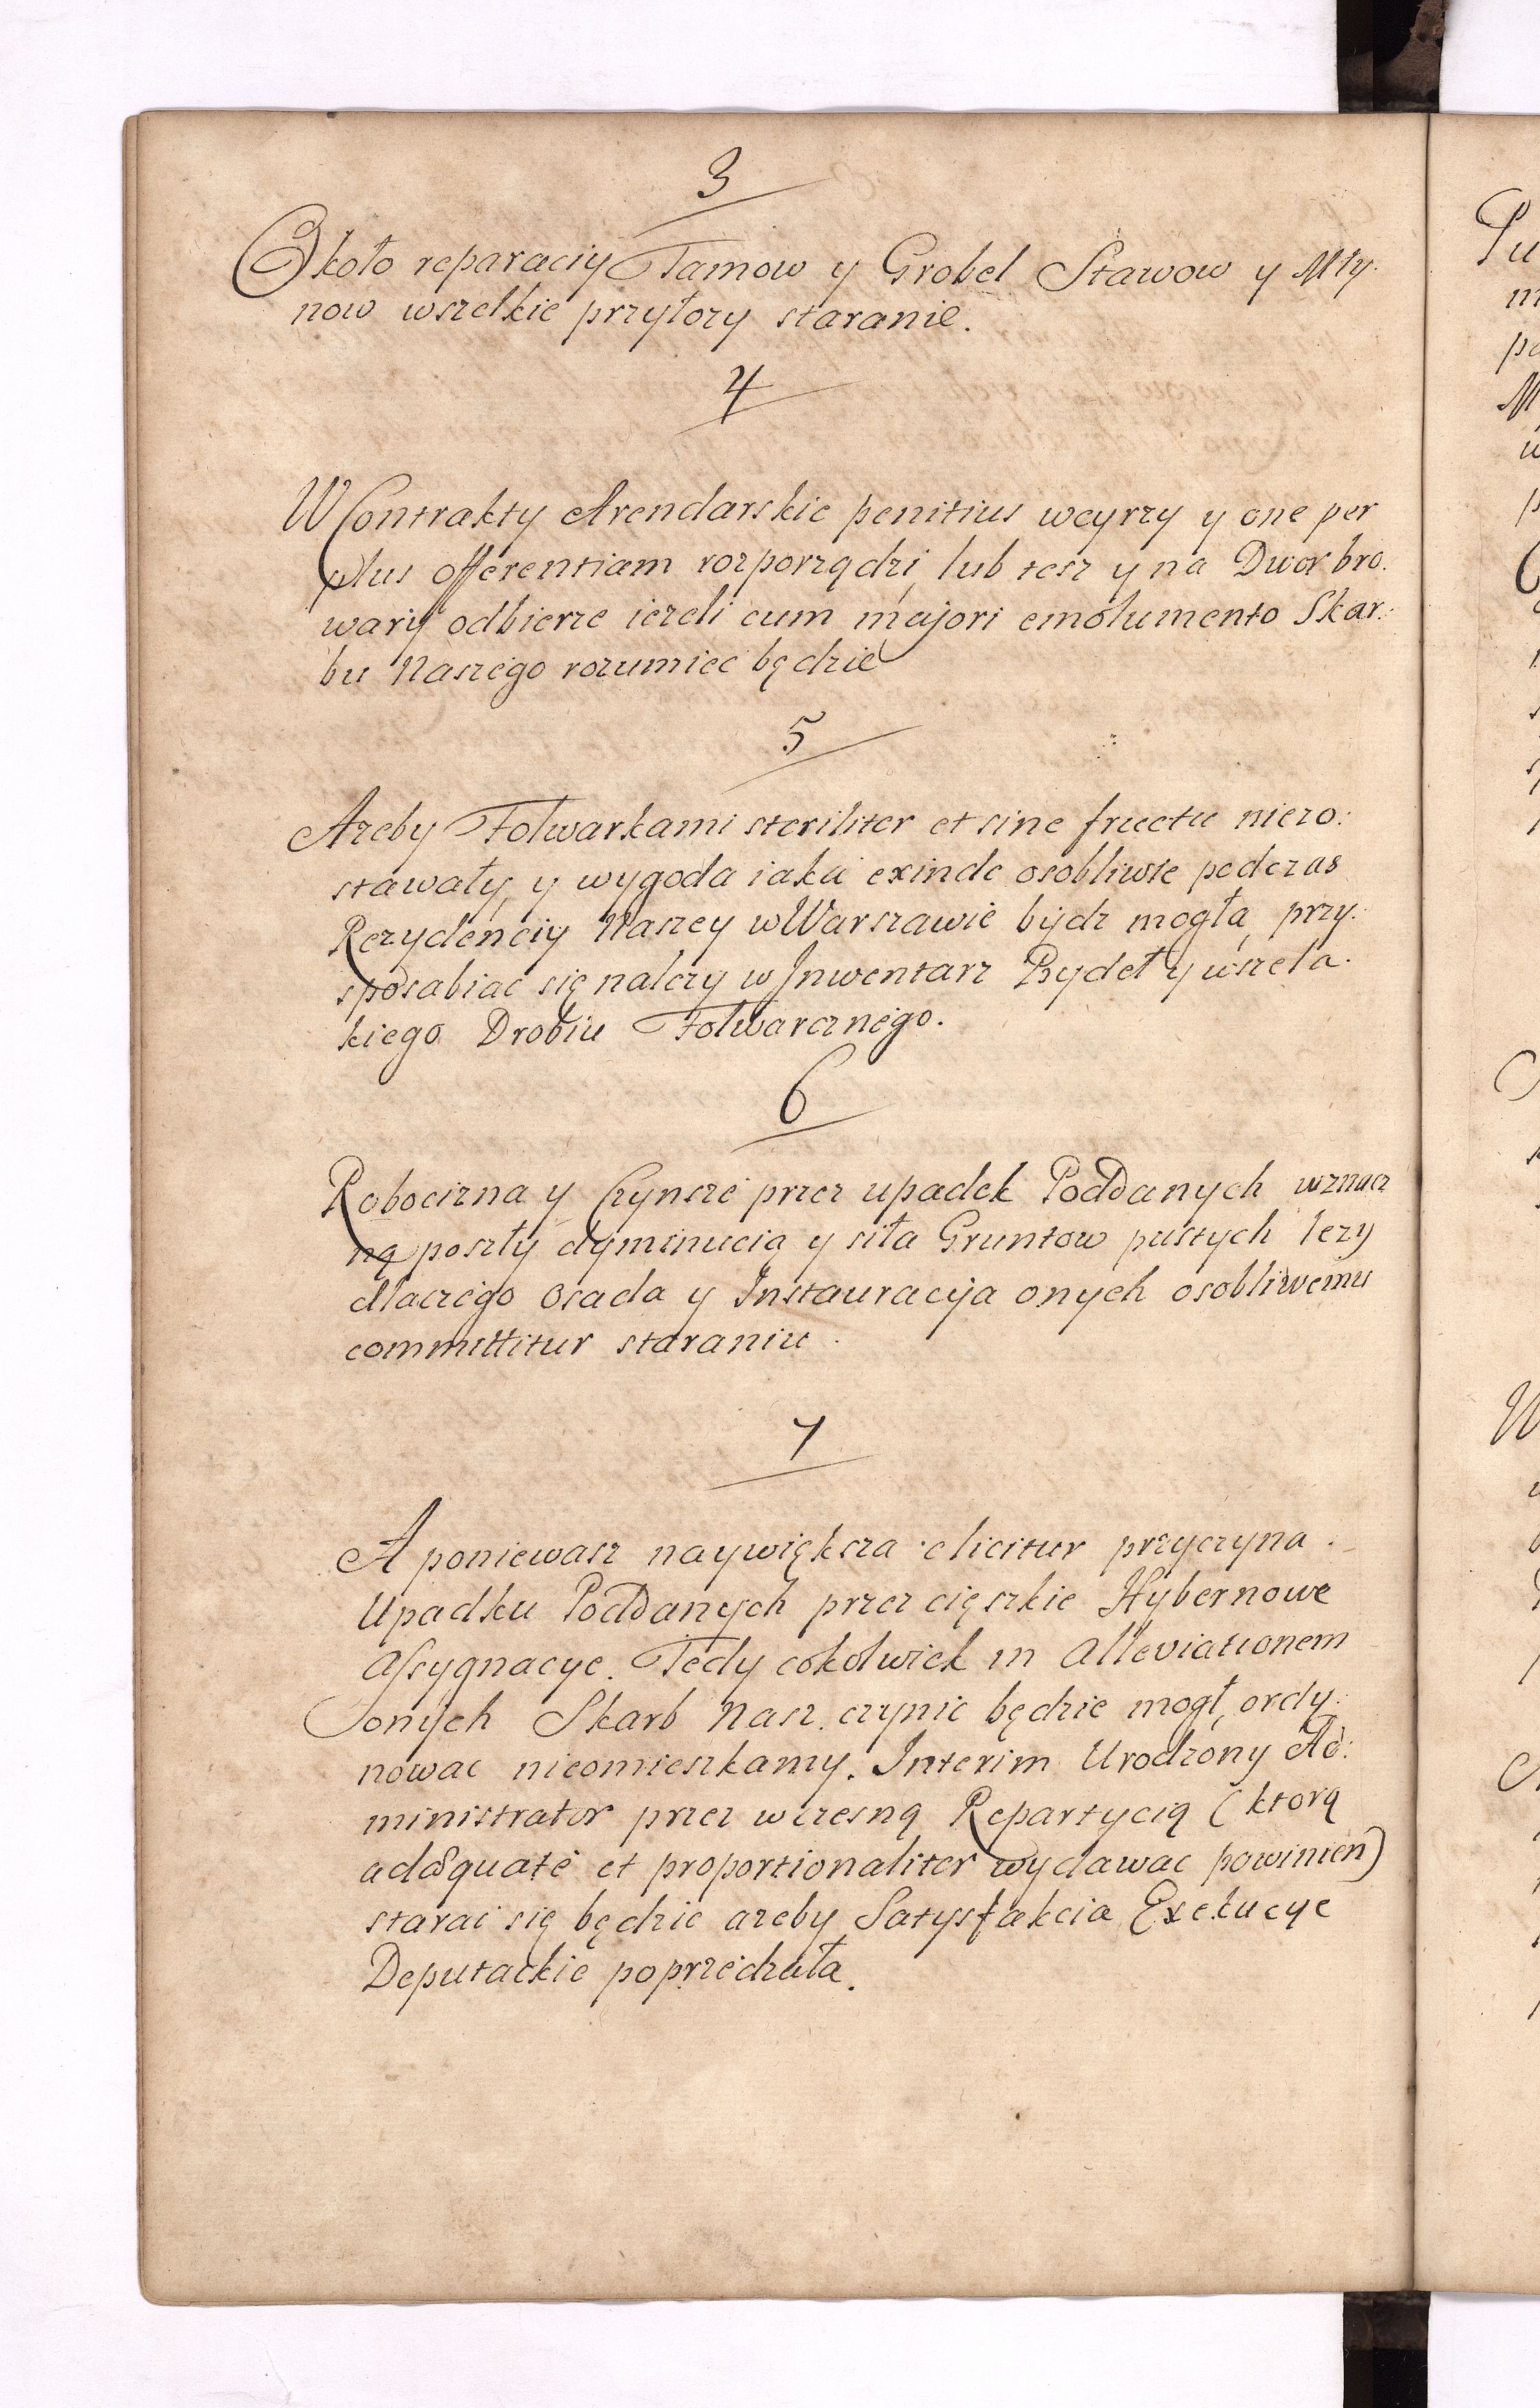 3
Około reparaciy Tamow y Grobel Stawow y Mły.
now wszelkie przyłozy staranie.
4
W Contrakty Arendarskie penitius weyrzy y one per
plus offerentiam rozporządzi, lub tesz y na Dwor bro.
wary odbierze iezeli cum majori emolumento Skar:
bu Naszego rozumiec będzie
5
Azeby Folwarkami steriliter et sine fructu niezo:
stawały, y wygoda iaka exinde osobliwie podczas
Rezydenciy Naszey w Warszawie bydz mogła, przy.
sposabiac się nalezy w Inwentarz Bydeł y wszela.
kiego Drobiu Folwarcznego.
6
Robocizna y Czynsze przez upadek Poddanych wznacz
ną poszły dyminucią y siła Gruntow pustych lezy
dlaczego Osada y Instauracyja onych osobliwemu
committitur staraniu.
7
A poniewasz naywiększa elicitur przyczyna
Upadku Poddanych przez cięszkie Hybernowe
Assygnacye. Tedy cokolwiek in Alleviationem
onych Skarb Nasz czynic będzie mogł, ordy.
nowac nieomieszkamy. Interim Urodzony Ad:
ministrator przez wczesną Repartycią (ktorą
adæquatè et proportionaliter wydawac powinien)
starac się będzie azeby Satysfakcia Exekucye
Deputackie poprzedzała.